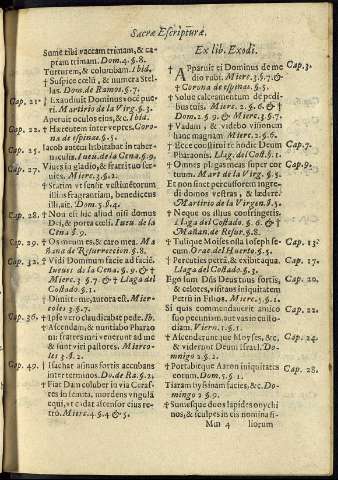 Sacræ Escripturæ.
Sume tibi vaccam trimam, & ca-
pram trimam. Dom. 4. §. 8.
Turturem, & columbam. Ibid.
† Suspice cœlū, & numera Stel-
las. Dom. de Ramos. §. 7.
Cap. 21. † Exaudivit Dominus vocē pue-
ri. Martirio de la Virg. §. 3.
Aperuit oculos eius, &c. Ibid.
Cap. 22. † Hærentem inter vepres. Coro-
na de espinas. §. 5.
Cap. 25. Iacob autem habitabat in taber-
naculis. Iueu. de la Cena. §. 9.
Cap. 27. Vivas in gladio, & fratri tuo ser-
vies. Miercoles 3. §. 7.
† Statim ut sensit vestimētorum
illius fragrantiam, benedicens
illi, ait. Dom. 3. §. 4.
Cap. 28. † Non est hic aliud nisi domus
Dei, & porta cœli. Iueu. de la
Cena §. 9.
Cap. 29. † Os meum es, & caro mea. Ma-
ñana de Resurreccion. §. 8.
Cap. 32. † Vidi Dominum facie ad faciē.
Iueves de la Cena. §. 9. & †
Mierc. 3. §. 7. & † Llaga del
Costado. §. 1.
† Dimitte me, aurora est. Mier-
coles 3. §. 7.
Cap. 36. † Ipse vero claudicabat pede. Ib.
† Ascendam, & nuntiabo Pharao
ni: fratres mei venerunt ad me
& sunt viri pastores. Mierco-
les 3. §. 2.
Cap. 49. † Isachar asinus fortis accubans
inter terminos. Do. de Ra. §. 2.
† Fiat Dan coluber in via Ceras-
tes in semita, mordens vngula
equi, vt cadat ascensor eius re-
tro. Mierc. 4. §. 4 & 5.
Ex lib. Exodi.
† Aparuit ei Dominus de me Cap. 3.
dio rubi. Mierc. 3. §. 7. &
† Corona de espinas. §. 5.
† Solue calceamentum de pedi-
bus tuis. Mierc. 2. §. 9. & †
Dom. 2. §. 9. & † Mierc. 3. §. 7.
† Vadam, & videbo visionem
hanc magnam. Mierc. 2. §. 9.
† Ecce constitui te Deum Cap. 7.
Pharaonis. Llag. del Cost. §. 1.
† Omnes plagas meas super cor Cap. 9.
tuum. Mart. de la Virg. §. 5.
Et non sinet percussorem ingre-
di domos vestras, & lædere.
Martirio de la Virgen. §. 5.
† Neque os illius confringetis.
Llag. del Costado. §. 6. & †
Mañan. de Resur. §. 8.
† Tulitque Moises ossa Ioseph se- Cap. 13.
cum. Orac. del Huerto. §. 5.
† Percuties petrā, & exibit aqua. Cap. 17.
Llaga del Costado. §. 3.
Ego sum Dñs Deus tuus fortis, Cap. 20.
& celotes, visitans iniquitatem
Patrū in Filios. Mierc. 1. §. 1.
Si quis commendaverit amico Cap. 22.
suo pecuniam, aut vas in custo-
diam. Viern. 1. §. 1.
† Ascenderuntque Moyses, &c. Cap. 24.
& viderunt Deum Israel. Do-
mingo 2. §. 2.
† Portabitque Aaron iniquitates Cap. 28.
eorum. Dom. 1. §. 1.
Tiaram byssinam facies, &c. Do-
mingo 2. §. 9.
† Sumesque duos lapides onychi
nos, & sculpes in eis nomina fi-
Mm 4 liorum